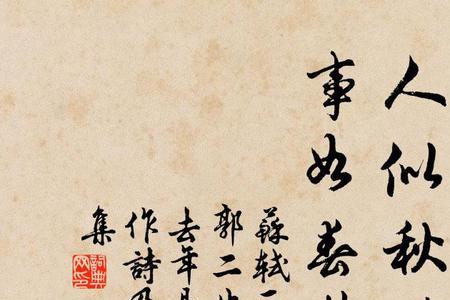 人似秋
事如春
蘇軾
郭二
去年
作詩
集